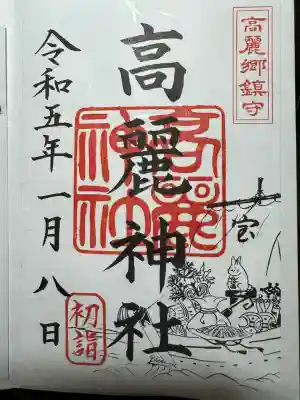 高麗郷鎮守
高麗神社
高麗
神社
令和五年一月八日
初詣
宝